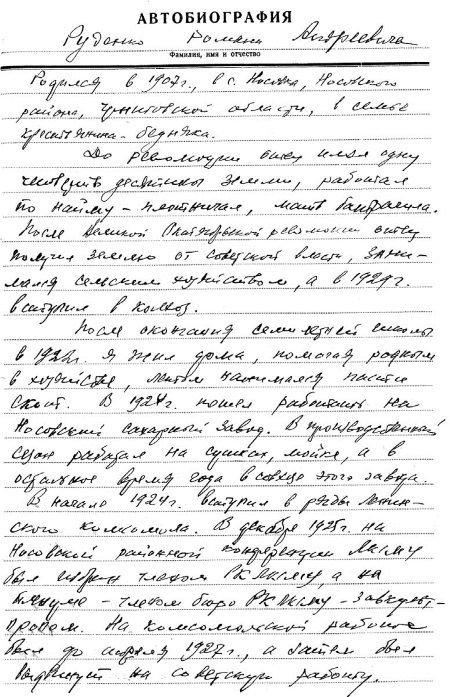 АВТОБИОГРАФИЯ
Руденко Романа Андреевича
Фамилия, имя и отчество
Родился в 1907г., в с. Носовка, Носовского
района, Черниговской области, в семье
крестьянина-бедняка.
До революции отец имел одну
четверть десятины земли, работал
по найму - плотничал, мать батрачила.
После Великой Октябрьской революции отец
получил землю от советской власти, зани-
мался сельским хозяйством, а в 1929г.
вступил в колхоз.
После окончания семилетней школы
в 1922г. я жил дома, помогая родным
в хозяйстве, летом нанимался пасти
скот. В 1924г. пошел работать на
Носовский сахарный завод. В производственный
сезон работал на сушках, мойке, а в
остальное время года в совхозе этого завода.
В начале 1924г. вступил в ряды Ленин-
ского комсомола. В декабре 1925г. на
Носовской районной конференции ЛКСМУ
был избран членом РК ЛКСМУ а на
пленуме - членом бюро РК ЛКСМУ - завкульт-
пропом. На комсомольской работе
был до апреля 1927г., а затем был
выдвинут на советскую работу.